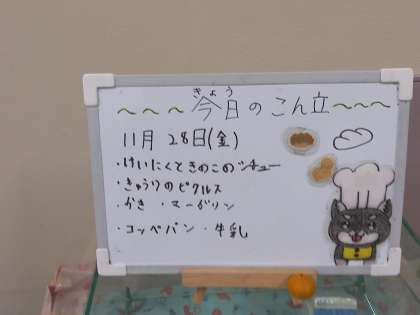 きょう
～～～今日のこん立～～～
11月 28日(金)
・けいにくときのこのシチュー
・きゅうりのピクルス
・かき ・マーガリン
・コッペパン ・牛乳